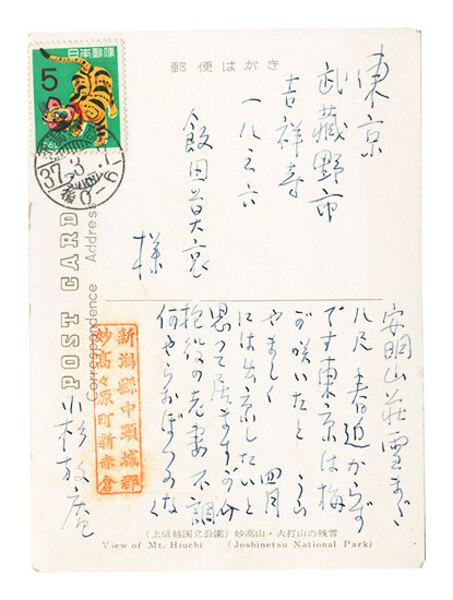 日本郵便
5
郵便はがき
東京
武蔵野市
吉祥寺
一八三六
飯田
様
37.3
POST CARD
Correspondence Address
安明山荘雪まだ
八尺 春遠からず
です東京は梅
が咲いたと うら
やまし 四月
には出京したいと
思って居ますが
役の老妻不調
何やらおぼつかなく
小杉放庵
新潟縣中頸城郡
妙高々原町新赤倉
(上信越国立公園) 妙高山・火打山の残雪
View of Mt. Hiuchi (Joshinetsu National Park)